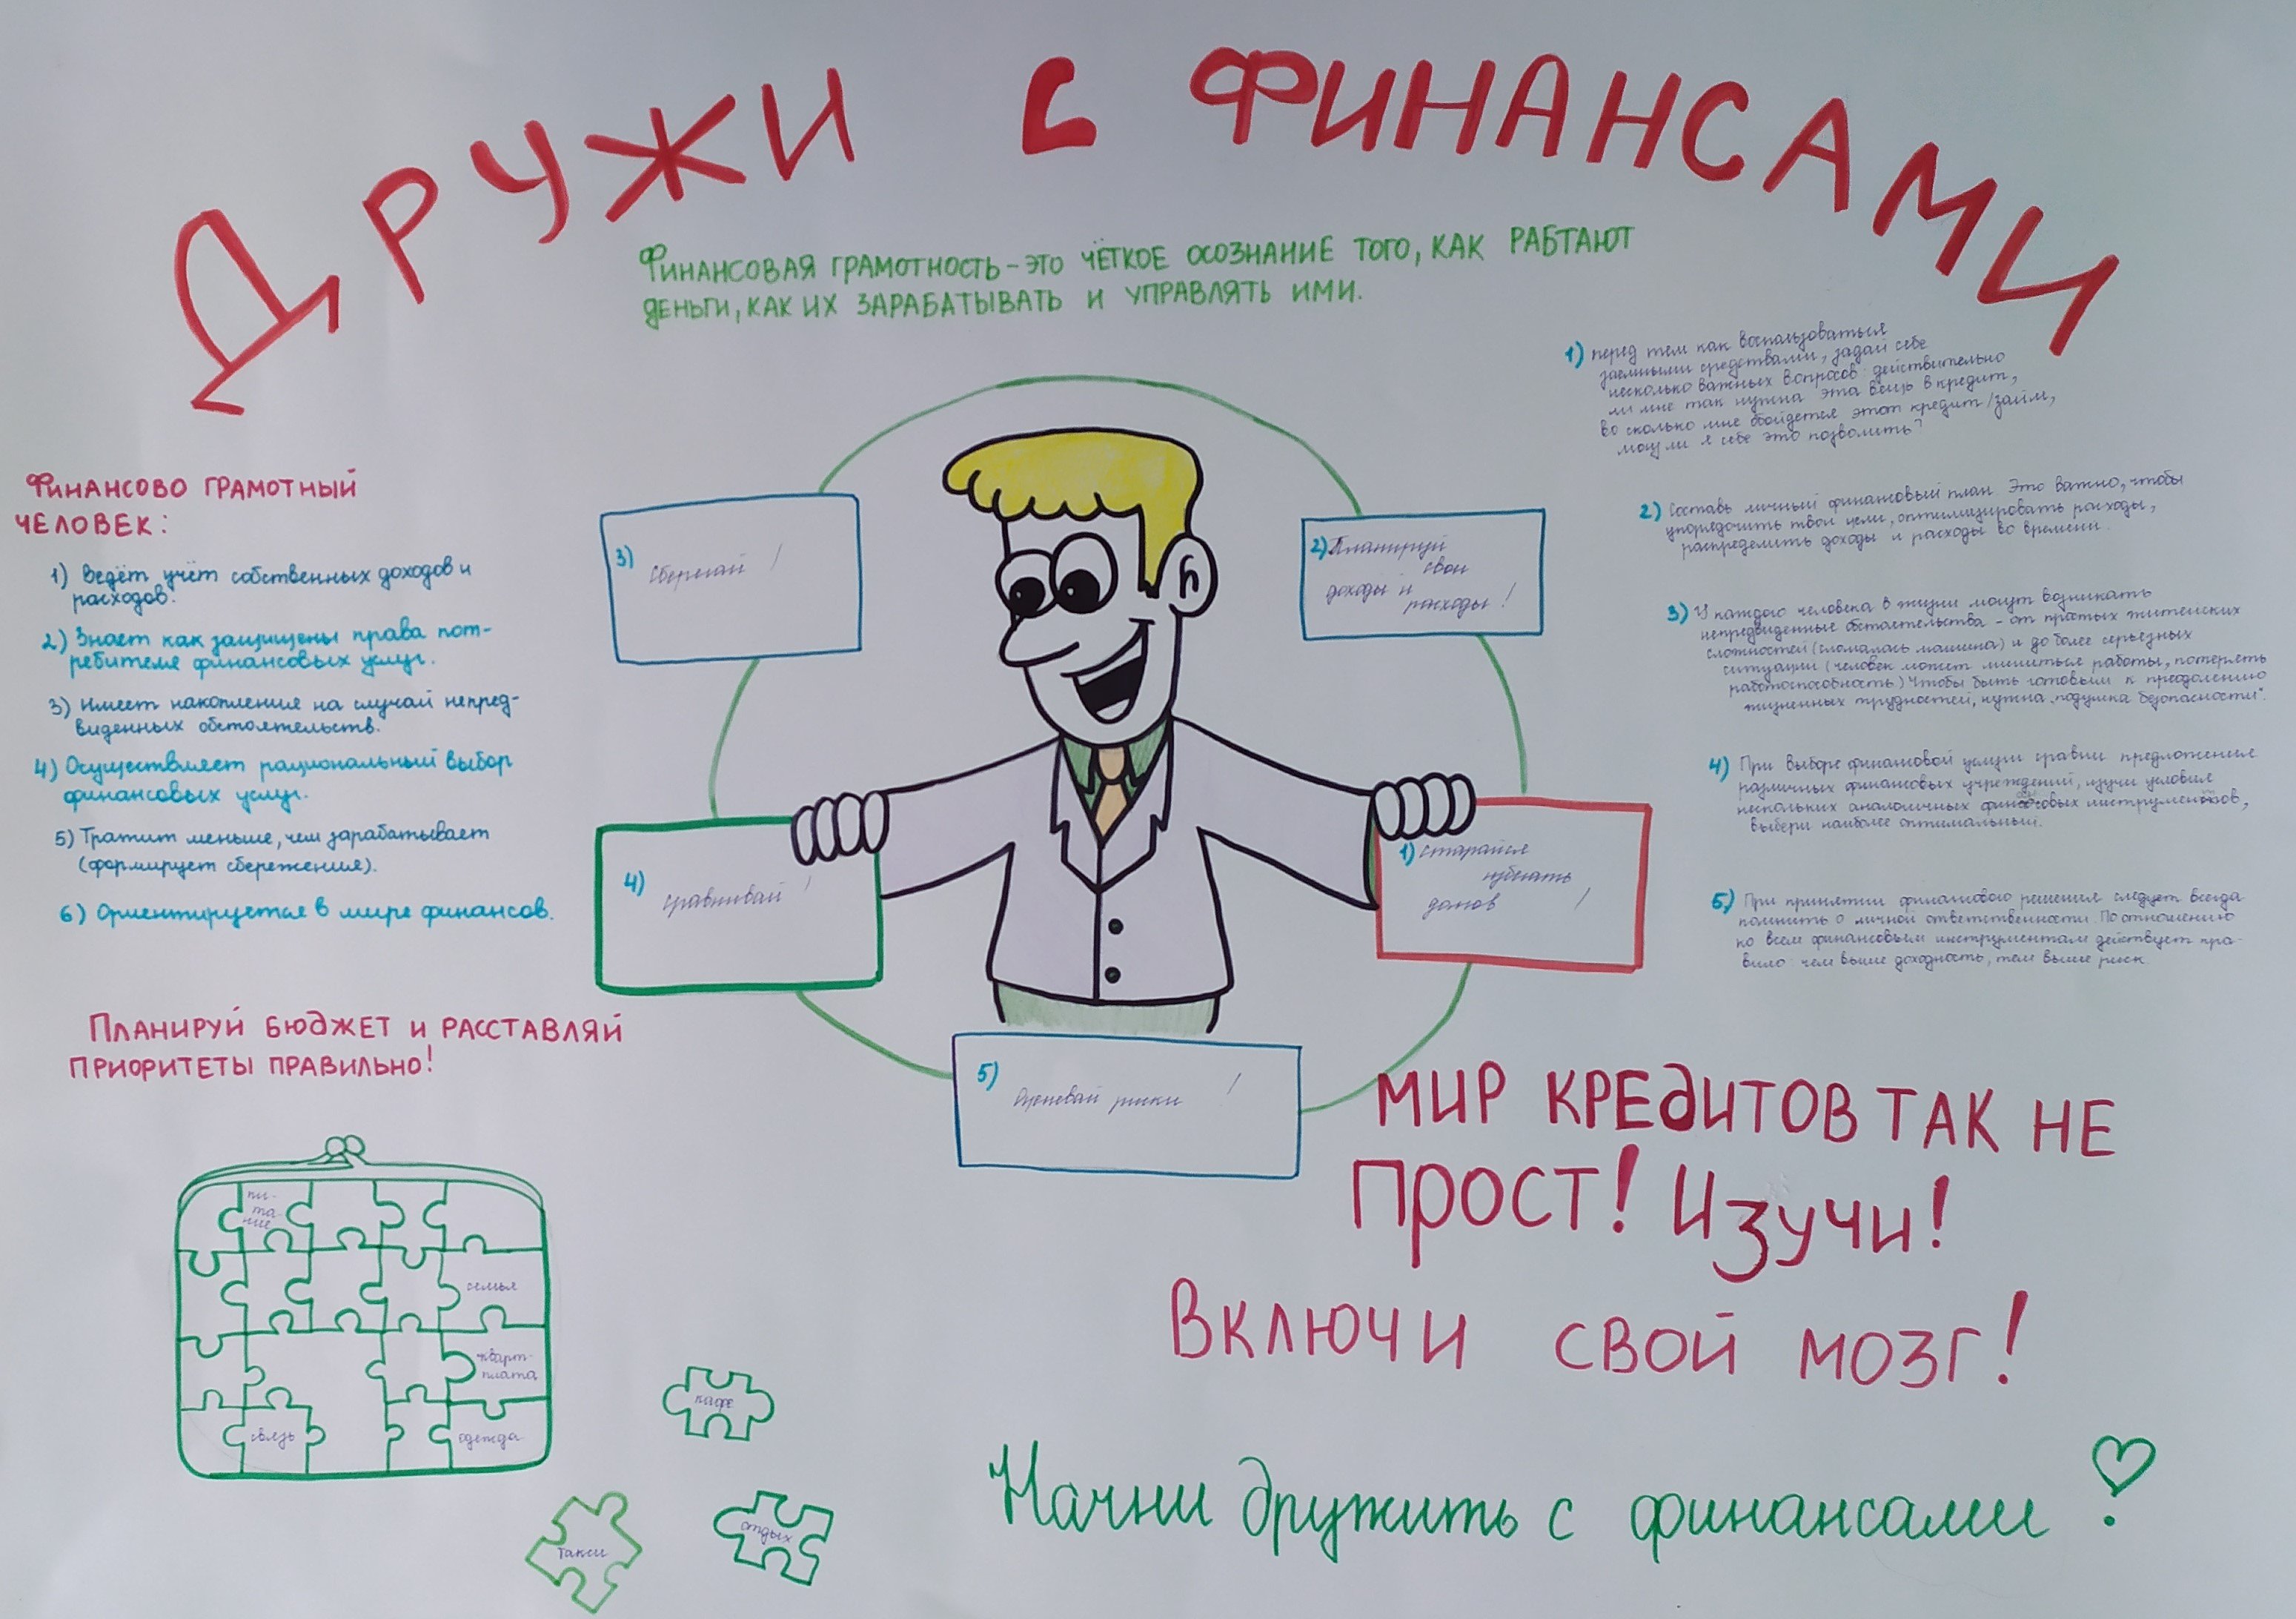 ДРУЖИ С ФИНАНСАМИ
Финансовая грамотность – это чёткое осознание того, как рабтают
деньги, как их зарабатывать и управлять ими.
Финансово грамотный
человек:
1) Ведёт учёт собственных доходов и
расходов.
2) Знает как защищены права пот-
ребителя финансовых услуг.
3) Имеет накопления на случай непред-
виденных обстоятельств.
4) Осуществляет рациональный выбор
финансовых услуг.
5) Тратит меньше, чем зарабатывает
(формирует сбережения).
6) Ориентируется в мире финансов.
3) Сберегай !
2) Планируй
свои
доходы и
расходы !
4) Сравнивай !
1) Старайся
избегать
долгов !
5) Оценевай риски !
1) перед тем как воспользоваться
заемными средствами, задай себе
несколько важных вопросов: действительно
ли мне так нужна эта вещь в кредит,
во сколько мне обойдется этот кредит/займ,
могу ли я себе это позволить?
2) Составь личный финансовый план. Это важно, чтобы
упорядочить твои цели, оптимизировать расходы,
распределить доходы и расходы во времени.
3) У каждого человека в жизни могут возникать
непредвиденные обстоятельства - от простых житейских
сложностей (сломалась машина) и до более серьезных
ситуации (человек может лишиться работы, потерять
работоспособность) Чтобы быть готовым к преодолению
жизненных трудностей, нужна „подушка безопасности".
4) При выборе финансовой услуги сравни предложения
различных финансовых учреждений, изучи условия
нескольких аналогичных финансовых инструментов,
выбери наиболее оптимальный.
5) При принятии финансового решения следует всегда
помнить о личной ответственности. По отношению
ко всем финансовым инструментам действует пра-
вило: чем выше доходность, тем выше риск.
Планируй бюджет и расставляй
приоритеты правильно!
пи-
та-
ние
семья
кварт-
плата
связь
одежда
кафе
такси
отдых
МИР КРЕДИТОВ ТАК НЕ
ПРОСТ! ИЗУЧИ!
ВКЛЮЧИ СВОЙ МОЗГ!
Начни дружить с финансами